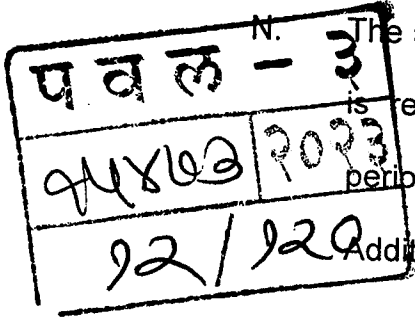 N. The
प व ल - ३
is re
१५४७३ २०२३
perio
१२/१२०
Addit